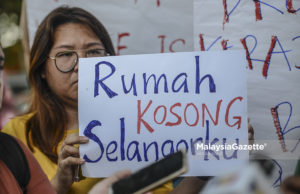 Rumah
KOSONG
Selangorku
MalaysiaGazette